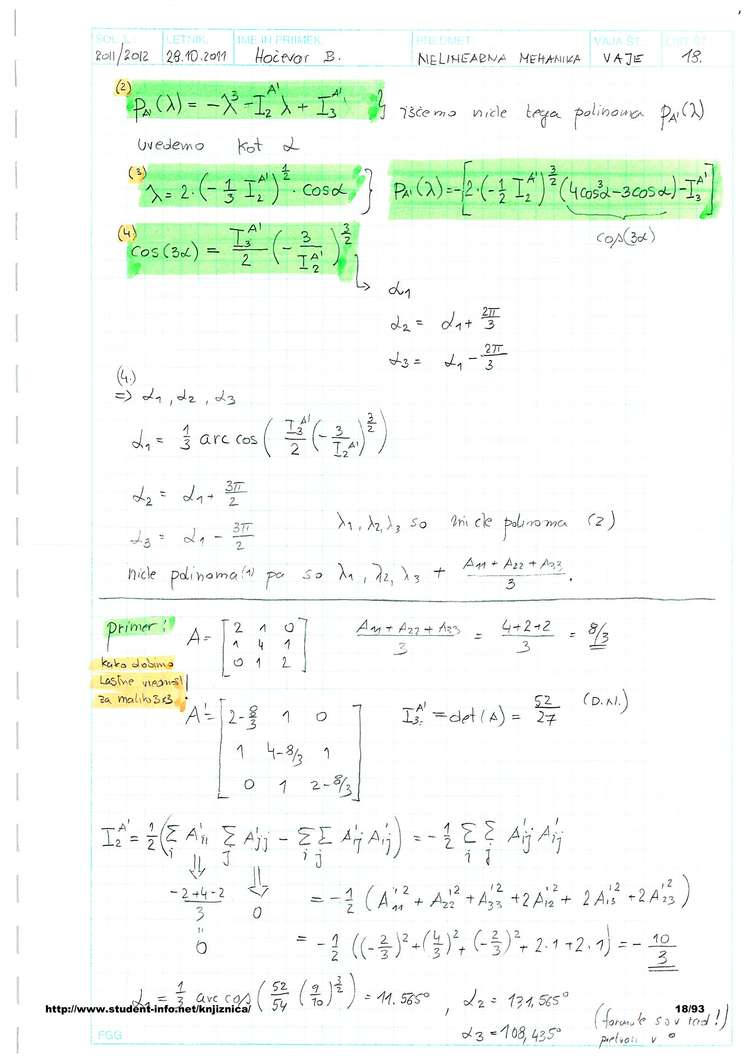 ŠOL. L. LETNIK IME IN PRIIMEK PREDMET VAJA ŠT. LIST ŠT.
2011/2012 28.10.2011 Hočevar B. NELINEARNA MEHANIKA VAJE 18.
(2) P_A'(λ) = -λ³ - I₂^A' λ + I₃^A' } iščemo ničle tega polinoma P_A'(λ)
uvedemo kot α
(3) λ = 2·(-1/3 I₂^A')^(1/2) · cosα } P_A'(λ) = -[2·(-1/2 I₂^A')^(3/2) (4cos³α - 3cosα) - I₃^A']
cos(3α)
(4) cos(3α) = I₃^A'/2 (-3/I₂^A')^(3/2)
↳ α₁
α₂ = α₁ + 2π/3
α₃ = α₁ - 2π/3
(4.)
=> α₁, α₂, α₃
α₁ = 1/3 arc cos (I₃^A'/2 (-3/I₂^A')^(3/2))
α₂ = α₁ + 3π/2
α₃ = α₁ - 3π/2
λ₁, λ₂, λ₃ so ničle polinoma (2)
ničle polinoma (1) pa so λ₁, λ₂, λ₃ + (A₁₁ + A₂₂ + A₃₃)/3.
primer: A = [2 1 0
1 4 1
0 1 2]
(A₁₁ + A₂₂ + A₃₃)/3 = (4+2+2)/3 = 8/3
kako dobimo
lastne vrednosti
za matriko 3x3
A' = [2-8/3 1 0
1 4-8/3 1
0 1 2-8/3]
I₃^A' = det(A) = 52/27 (D.N.!)
I₂^A' = 1/2 (Σᵢ A'ᵢᵢ Σⱼ A'ⱼⱼ - Σᵢ Σⱼ A'ᵢⱼ A'ᵢⱼ) = -1/2 Σᵢ Σⱼ A'ᵢⱼ A'ᵢⱼ
(-2+4-2)/3 0
"
0
= -1/2 (A'₁₁² + A'₂₂² + A'₃₃² + 2A'₁₂² + 2A'₁₃² + 2A'₂₃²)
= -1/2 ((-2/3)² + (4/3)² + (-2/3)² + 2·1 + 2·1) = -10/3
α₁ = 1/3 arc cos (52/54 (9/10)^(3/2)) = 11.565°, α₂ = 131,565°
α₃ = 108,435°
(formule so v rad!)
http://www.student-info.net/knjiznica/ 18/93
FGG